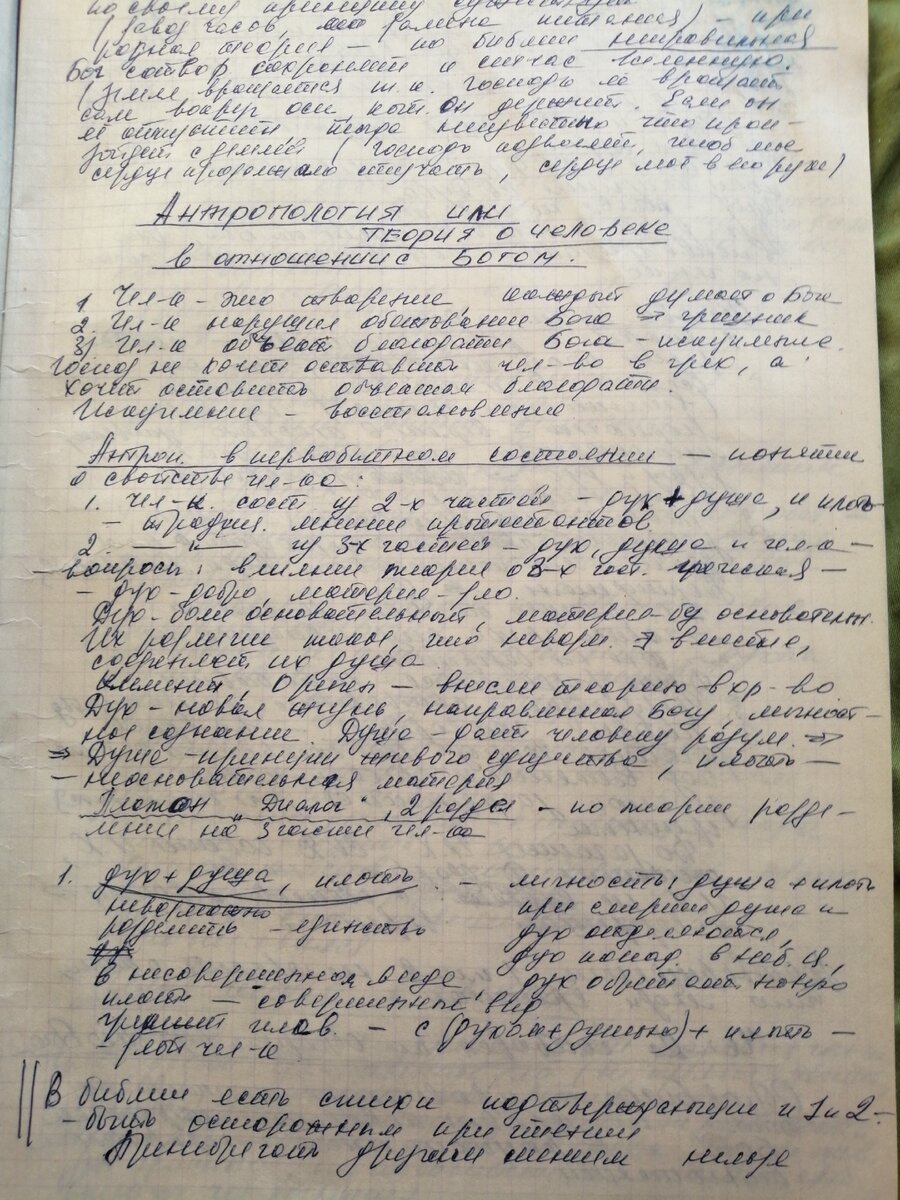 по своему принципу
(завод часов, питания) – при
родная теория – но библии неправильная
Бог сотвор. сохраняет и сейчас вселенную.
(земля вращается т.к. господь её вращает
сам вокруг оси, кот. он держит. Если он
её отпустит, тогда неизвестно что прои-
зойдет с землей (господь позволяет, чтоб мое
сердце продолжало стучать, сердце моё в его руке)
Антропология или
теория о человеке
в отношении с Богом.
1 Чел-к – это творение, думает о Боге
2. Чел-к нарушил обетование Бога → грешник
3) Чел-к объят благодатью Бога – искупление.
Господ не хочет оставлять чел-во в грех, а
хочет оставить объятая благодати.
Искупление – восстановление
Антроп. в первобытном состоянии – понятии
о свойстве чел-ка:
1. Чел-к. сост из 2-х частей – дух + душа, и плоть
– традиц. мнение протестантов
2. —— " —— из 3-х частей – дух, душа и чел-к –
вопросы: влияние теории о 3-х част. греческая –
– дух – добро, материя – зло.
Дух – боле основательный, материя – без основательн.
Их различи такое, что невозм. вместе,
соединяет их душа
Климент, Ориген – внесли теорию в хр-во
Дух – новая жизнь, направленная Богу, личност-
ное сознание. Душа – дает человеку разум. ⇒
⇒ Душа – принцип живого существа, плоть –
– неосновательная материя
Платон "Диалог", 2 разд – по теории разде-
ление на 3 части чел-ка
1. дух + душа, плоть – личность: душа + плоть
невозможно при смерти душа и
разделить – единство дух отделяются,
дух попад. в неб. ц.,
в несовершенном виде, дух обретает новую
плоть – совершенный вид
– с (духом + душью) + плоть –
– чел-к
В библии есть стихи подтверждающие и 1 и 2 –
– быть осторожным при чтении
Пренебрегать другим мнением нельзя